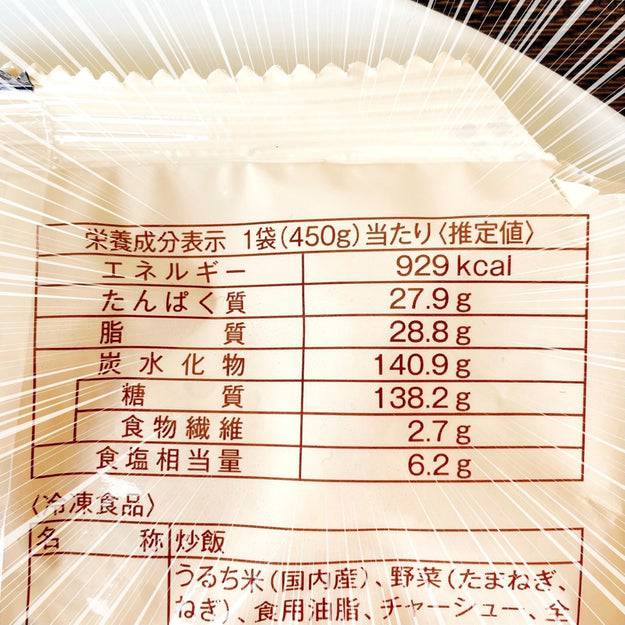 栄養成分表示 1袋(450g)当たり〈推定値〉
エネルギー 929kcal
たんぱく質 27.9g
脂質 28.8g
炭水化物 140.9g
糖質 138.2g
食物繊維 2.7g
食塩相当量 6.2g
〈冷凍食品〉
名称 炒飯
うるち米(国内産)、野菜(たまねぎ、
ねぎ)、食用油脂、チャーシュー、全